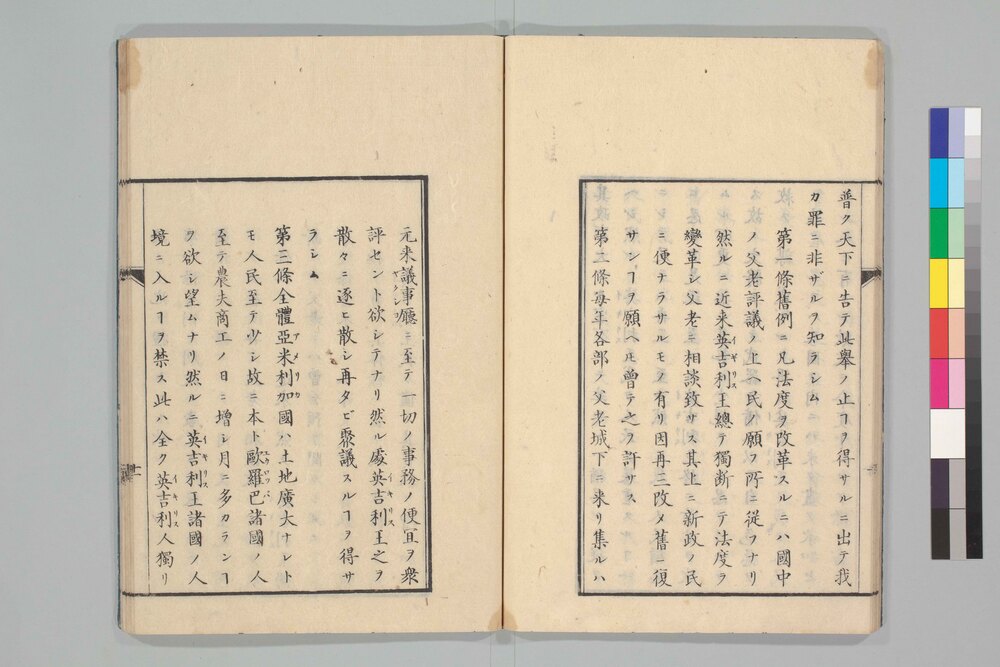 普ク天下ニ告テ此舉ノ止ヿヲ得サルニ出テ我
カ罪ニ非ザルヲ知ラシム
第一條舊例ニ凡法度ヲ改革スルニハ國中
ノ父老評議ノ上ヘ民ノ願フ所ニ從フナリ
然ルニ近来英吉利王總テ獨斷ニテ法度ヲ
變革シ父老ニ相談致サス其上ニ新政ノ民
ニ便ナラサルモノ有リ因再三改メ舊ニ復
サンヿヲ願ヘ𪜈曾テ之ヲ許サス
第二條毎年各部ノ父老城下ニ来リ集ルハ
元来議事廳ニ至テ一切ノ事務ノ便宜ヲ衆
評セント欲シテナリ然ル處英吉利王之ヲ
散々ニ逐ヒ散シ再タビ聚議スルヿヲ得サ
ラシム
第三條全體亞米利加國ハ土地廣大ナレト
モ人民至テ少シ故ニ本ト歐羅巴諸國ノ人
至テ農夫商工ノ日ニ増シ月ニ多カランヿ
ヲ欲シ望ムナリ然ルニ英吉利王諸國ノ人
境ニ入ルヿヲ禁ス此ハ全ク英吉利人獨リ